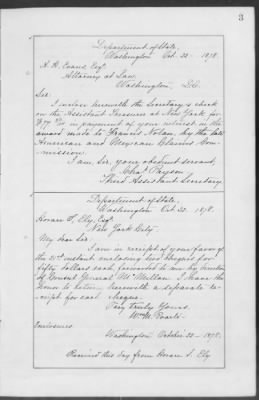 3
Department of State,
Washington Oct. 22 - 1878
A. R. Evans Esqr.
Attorney at Law
Washington, D.C.
Sir:
I inclose herewith the Secretary's check
on the Assistant Treasurer at New York for
in payment of your interest in the
award made to Francis Nolan, by the late
American and Mexican Claims Com-
mission.
I am, Sir, your obedient servant,
Chas. Payson
Third Assistant Secretary.
Department of State,
Washington Oct. 22. 1878.
Horace S. Ely, Esq.
New York City.
My dear Sir:
I am in receipt of your favor of
the 21st instant enclosing two cheques for
fifty dollars each, forwarded to me by direction
of Consul General McMillan. I have the
honor to return herewith a separate re-
ceipt for each cheque.
Very truly Yours,
Wm. M.
Enclosures.
Washington October 22 - 1878.
Received this day from Horace S. Ely